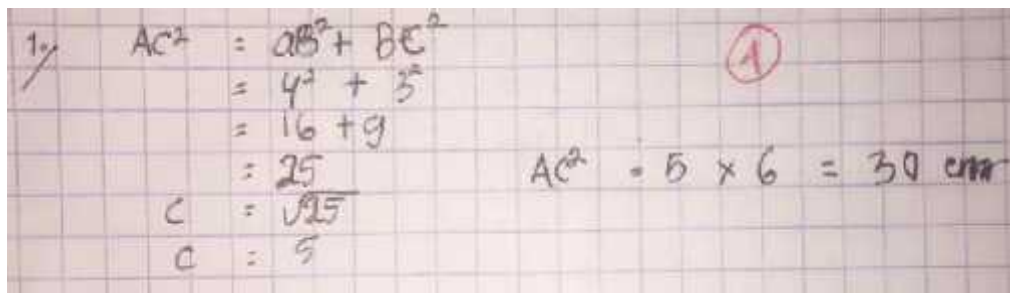 1. AC² = aB² + BC²
= 4² + 3²
= 16 + 9
= 25
C = √25
C = 5
1
AC² = 5 × 6 = 30 cm